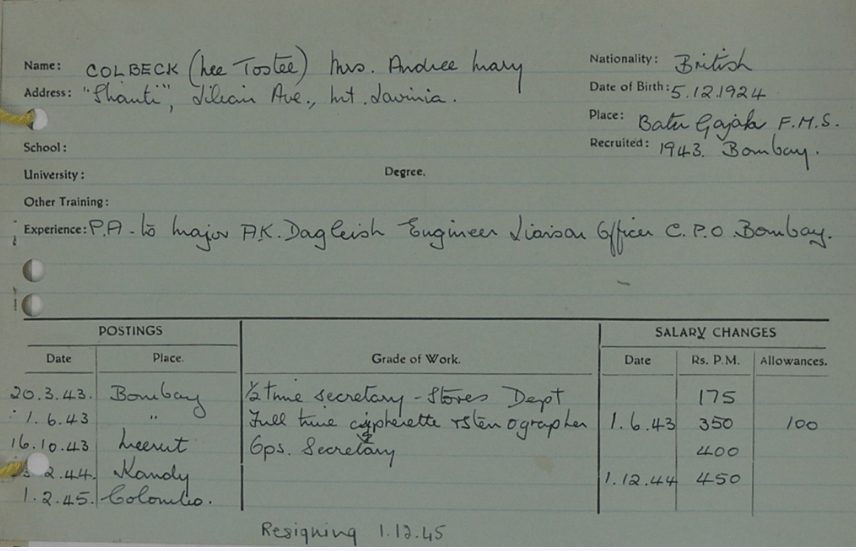 Name: COLBECK (nee Tostee) Mrs. Andree Mary
Nationality: British
Address: "Shanti", Lilian Ave., Mt. Lavinia.
Date of Birth: 5.12.1924
Place: Batu Gajah F.M.S.
School:
Recruited: 1943. Bombay.
University: Degree.
Other Training:
Experience: P.A. to Major A.K. Dagleish Engineer Liaison Officer C.P.O. Bombay.
POSTINGS SALARY CHANGES
Date Place. Grade of Work. Date Rs. P.M. Allowances.
20.3.43. Bombay ½ time secretary - Stores Dept 175
1.6.43 " Full time cypherette & stenographer 1.6.43 350 100
16.10.43 Meerut Gps. Secretary 400
2.44. Kandy 1.12.44 450
1.2.45. Colombo.
Resigning 1.12.45